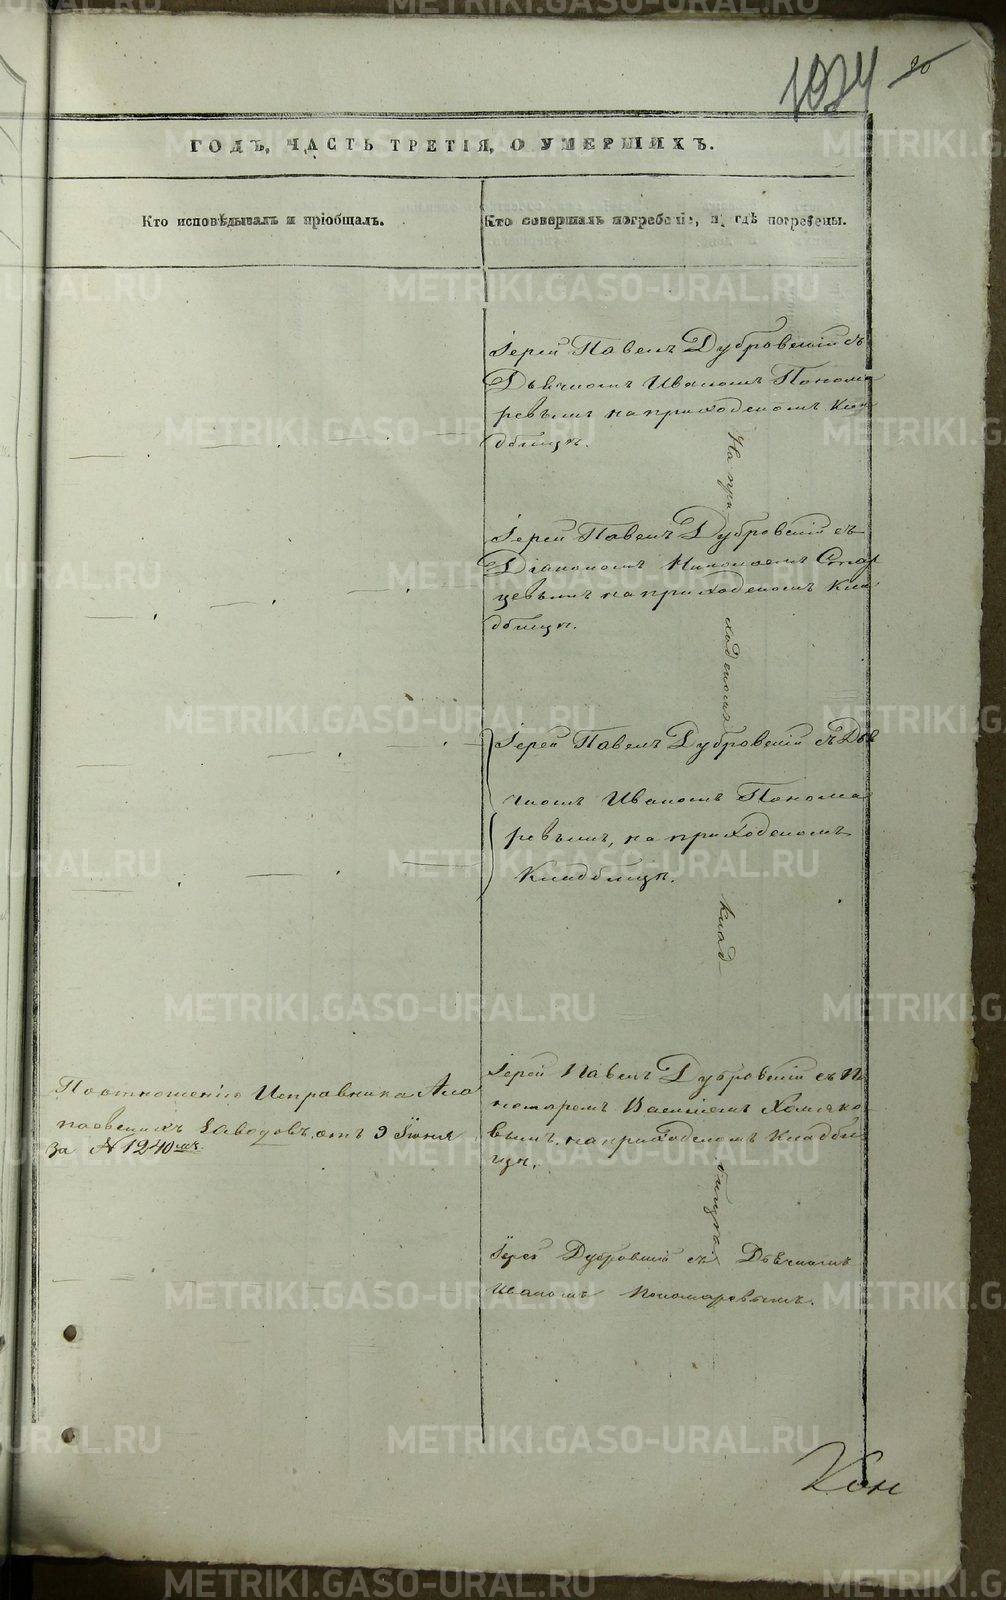 1024
80
ГОДЪ, ЧАСТЬ ТРЕТІЯ, О УМЕРШИХЪ.
Кто исповѣдывалъ и пріобщалъ.
Кто совершалъ погребеніе, и гдѣ погребены.
Іерей Павелъ Дубровскій съ
Дьячкомъ Иваномъ Понома
ревымъ на приходскомъ Кла
дбищѣ.
Іерей Павелъ Дубровскій съ
Діакономъ Николаемъ Стар
цевымъ на приходскомъ Кла
дбищѣ.
Іерей Павелъ Дубровскій съ Дья
чкомъ Иваномъ Понома
ревымъ, на приходскомъ
Кладбищѣ.
По отношенію Исправника Ала
паевскихъ Заводовъ, отъ 9 Іюня
за № 1240
Іерей Павелъ Дубровскій съ П
номаремъ Василіемъ Хомяко
вымъ, на приходскомъ Кладби
щѣ.
Іерей Дубровскій съ Дьячкомъ
Иваномъ Пономаревымъ.
На при
ходскомъ
клад
бищѣ
METRIKI.GASO-URAL.RU